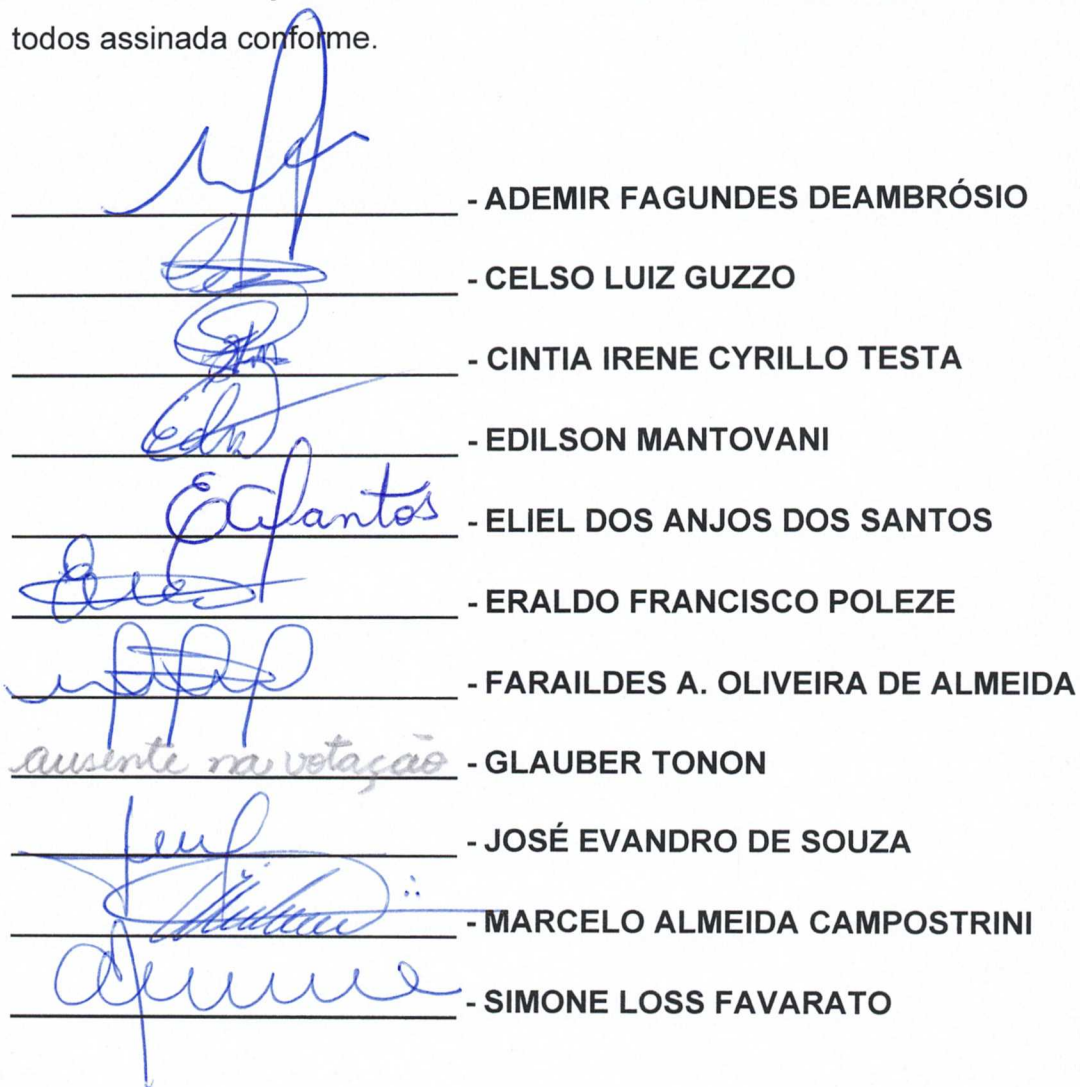 todos assinada conforme.
- ADEMIR FAGUNDES DEAMBRÓSIO
- CELSO LUIZ GUZZO
- CINTIA IRENE CYRILLO TESTA
- EDILSON MANTOVANI
- ELIEL DOS ANJOS DOS SANTOS
- ERALDO FRANCISCO POLEZE
- FARAILDES A. OLIVEIRA DE ALMEIDA
ausente na votação - GLAUBER TONON
- JOSÉ EVANDRO DE SOUZA
- MARCELO ALMEIDA CAMPOSTRINI
- SIMONE LOSS FAVARATO